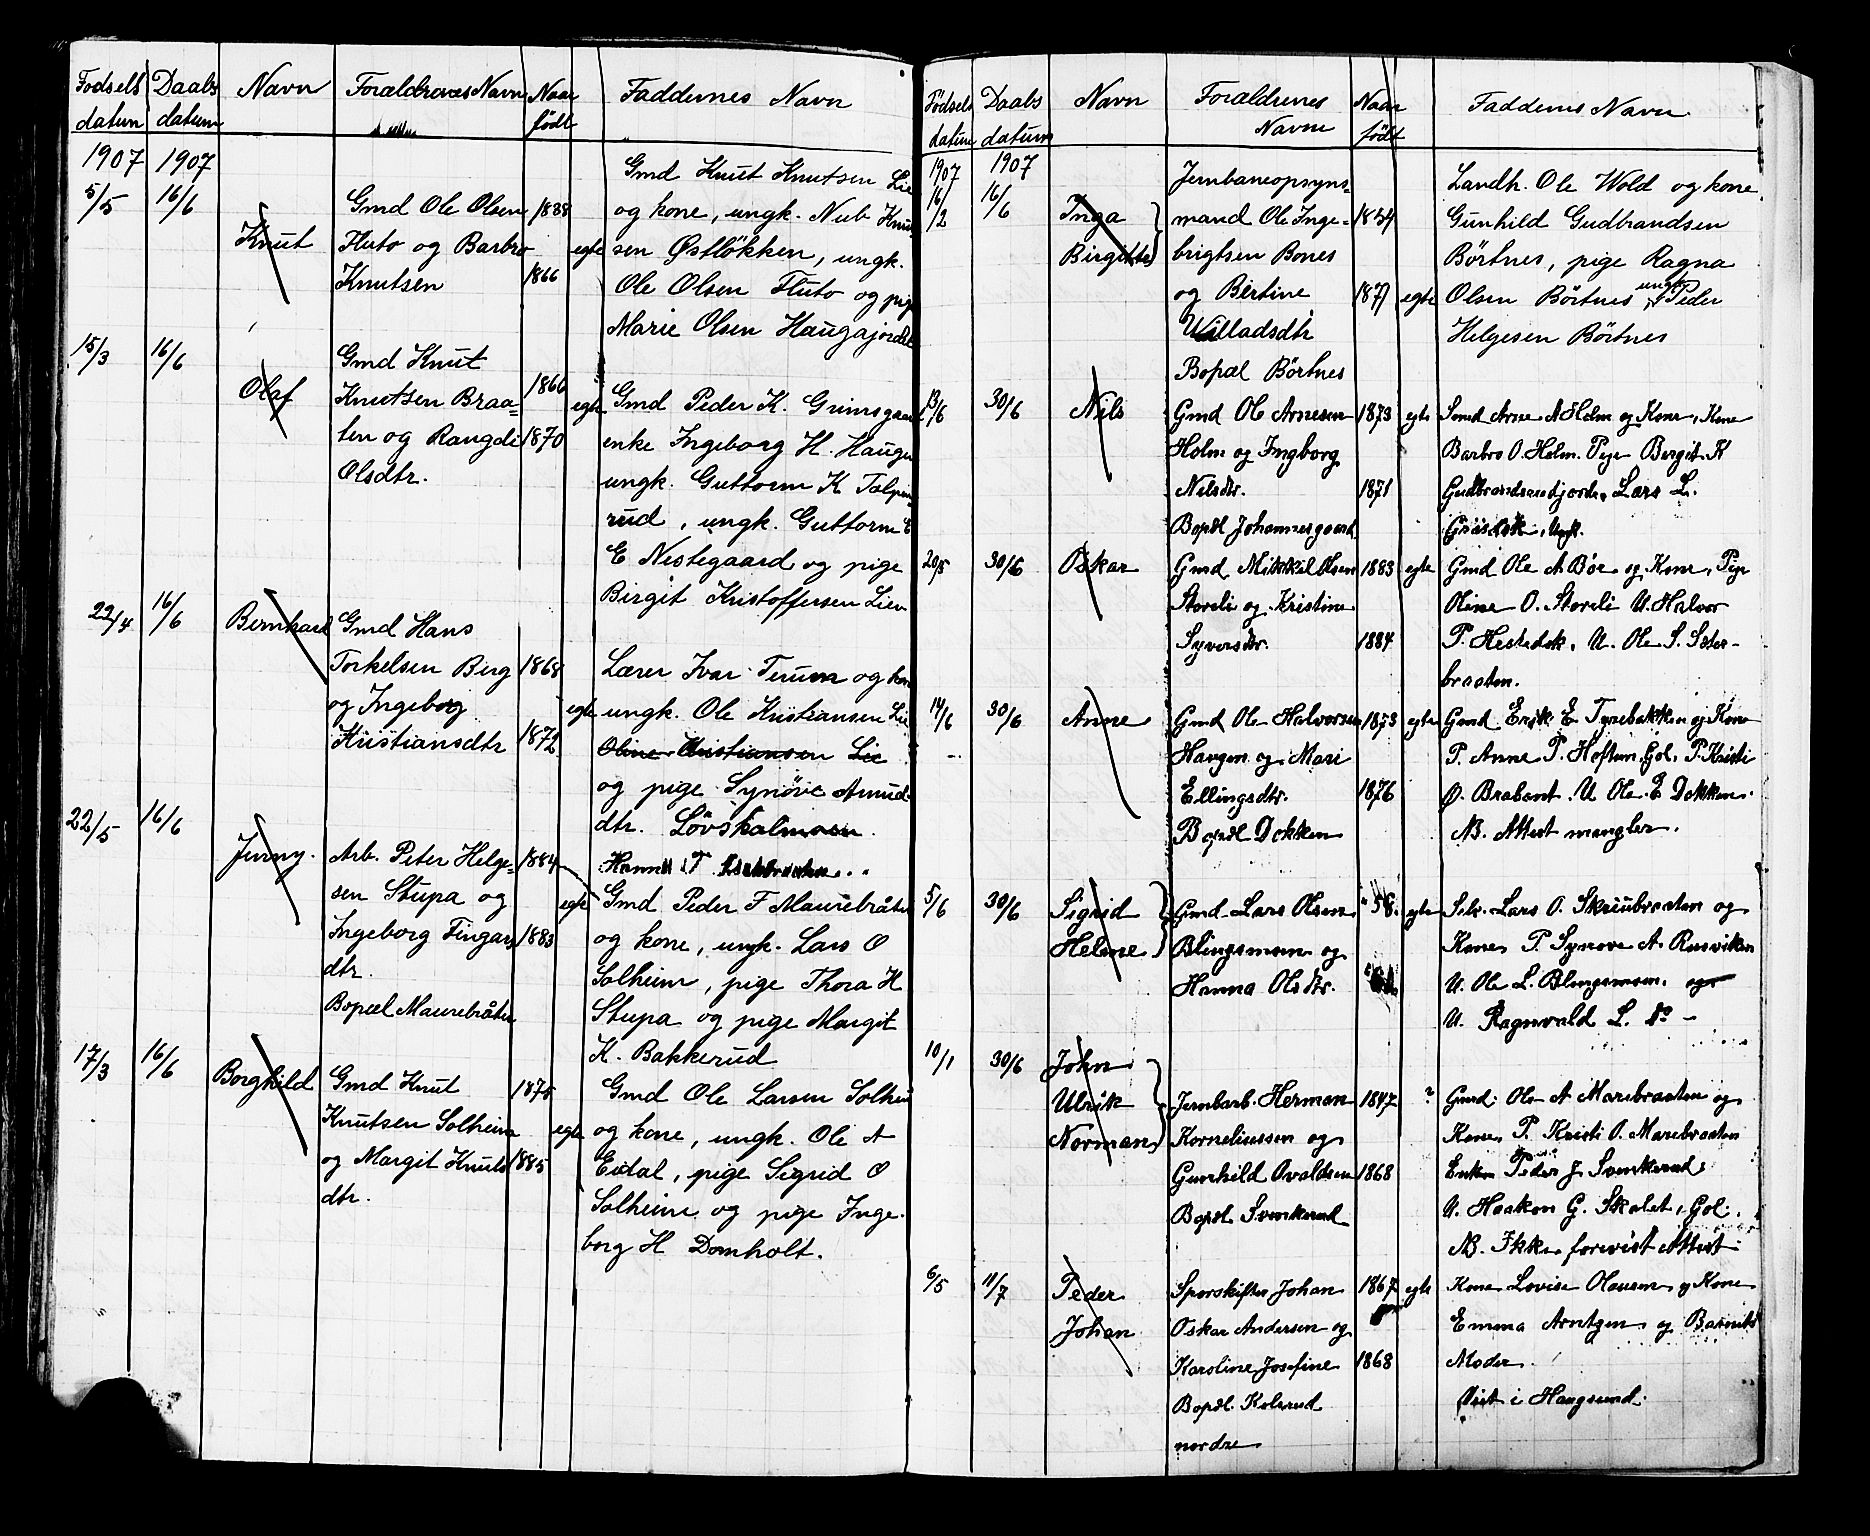 Fodsels Daabs Navn Forældrenes Navn Naar Faddernes Navn
datum datum født
1907 1907
Gmd Knut Knutsen Lie
5/5 16/6 Gmd Ole Olsen 1838 og kone, ungk. Nub Knut-
Knut Fluto og Barbro egte sen Østløkken, ungk.
Knutsen 1866 Ole Olsen Fluto og pige
Marie Olsen Haugajordet
15/3 16/6 Gmd Knut
Olaf Knutsen Braa= 1866 egte Gmd Peder K. Grimsgaar
ten og Rangdi 1870 enke Ingeborg H. Haugen
Olsdtr. ungk. Guttorm K Talpe
rud, ungk. Guttorm E
E Nestegaard og pige
Birgit Kristoffersen Lien
22/4 16/6 Bernhard Gmd Hans
Torkelsen Berg 1868 Lærer Ivar Terum og kone
og Ingeborg egte ungk. Ole Kristiansen Lie
Kristiansdtr 1872 Oline Kristiansen Lie
og pige Synöve Amund
dtr. Lövskalmoen.
22/5 16/6 Jurny. Arb. Peter Helge= 1884 Hanna T
sen Stupa og egte Gmd Peder F Maurebråten
Ingeborg Fingars 1883 og kone, ungk. Lars O
dtr. Solheim, pige Thora H
Bopæl Maurebråten Stupa og pige Margit
K. Bakkerud
17/3 16/6 Borghild Gmd Knut 1875 Gmd Ole Larsen Solheim
Knutsen Solheim egte og kone, ungk. Ole A
og Margit Knuts 1885 Eidal, pige Sigrid O
dtr. Solheim og pige Inge-
borg H Domholt.
Fødsels Daabs Navn Forældrenes Naar Faddernes Navn
datum datum Navne født
1907 1907 Jernbaneopsyns= Landh. Ole Wold og kone
16/2 16/6 Inga mand Ole Inge= 1854 Gunhild Gudbrandsen
Birgitte brigtsen Bones Börtnes, pige Ragna
og Bertine 1877 egte Olsen Börtnes ungk. Peder
Willadsdtr Helgesen Börtnes
Bopæl Börtnes
13/6 30/6 Nils Gmd Ole Arnesen 1873 egte Smd Arne A Holm og Kone, Kone
Holm og Ingborg Barbro O. Holm. Pige Bergit K
Nilsdtr. 1871 Gudbrandsendjorden, Lars L.
Bopæl Johannesgaard Ungk.
20/5 30/6 Oskar Gmd Mikkel Olsen 1883 egte Gmd Ole A Böe og Kone, Pige
Storeli og Kristine Oline O. Storeli U. Halvor
Syversdtr. 1884 P. Hestedok. U. Ole S. Sæter-
braaten.
14/6 30/6 Anne Gmd Ole Halvorsen 1873 egte Gmd Erik E Tyrebakken og Kone
Haugen og Mari P. Anne P. Hoftun, Gol, P. Kristi
Ellingsdtr. 1876 O. Brabant. U Ole E Dokken.
Bopæl Dokken NB. Attest mangler.
5/6 30/6 Sigrid Gmd Lars Olsen "58. egte Selv. Lars O. Skriubraaten og
Helene Blingsmoen og Kone, P. Synove A. Rusviken
Hanna Olsdtr. U. Ole L. Blingsmoen. og
U. Ragnvald L. Do -
10/1 30/6 John
Ulrik Jernbarb. Herman 1847 ? Gmd. Ole A Marebraaten og
Norman Korneliussen og Kone, P. Kristi O. Marebraaten
Gunhild Ovaldsen 1868 Enken Peder J. Svenkerud
Bopæl Svenkerud U. Haakon G. Skalet, Gol.
NB. Ikke forevist Attest
6/5 11/7 Peder Sporskifter Johan 1867 egte Kone Lovise Olausen og Kone
Johan Oskar Andersen og Emma Arntzen og Barnets
Karoline Josefine 1868 Moder.
Bopæl Kolsrud Døit i Haugsund.
nordre